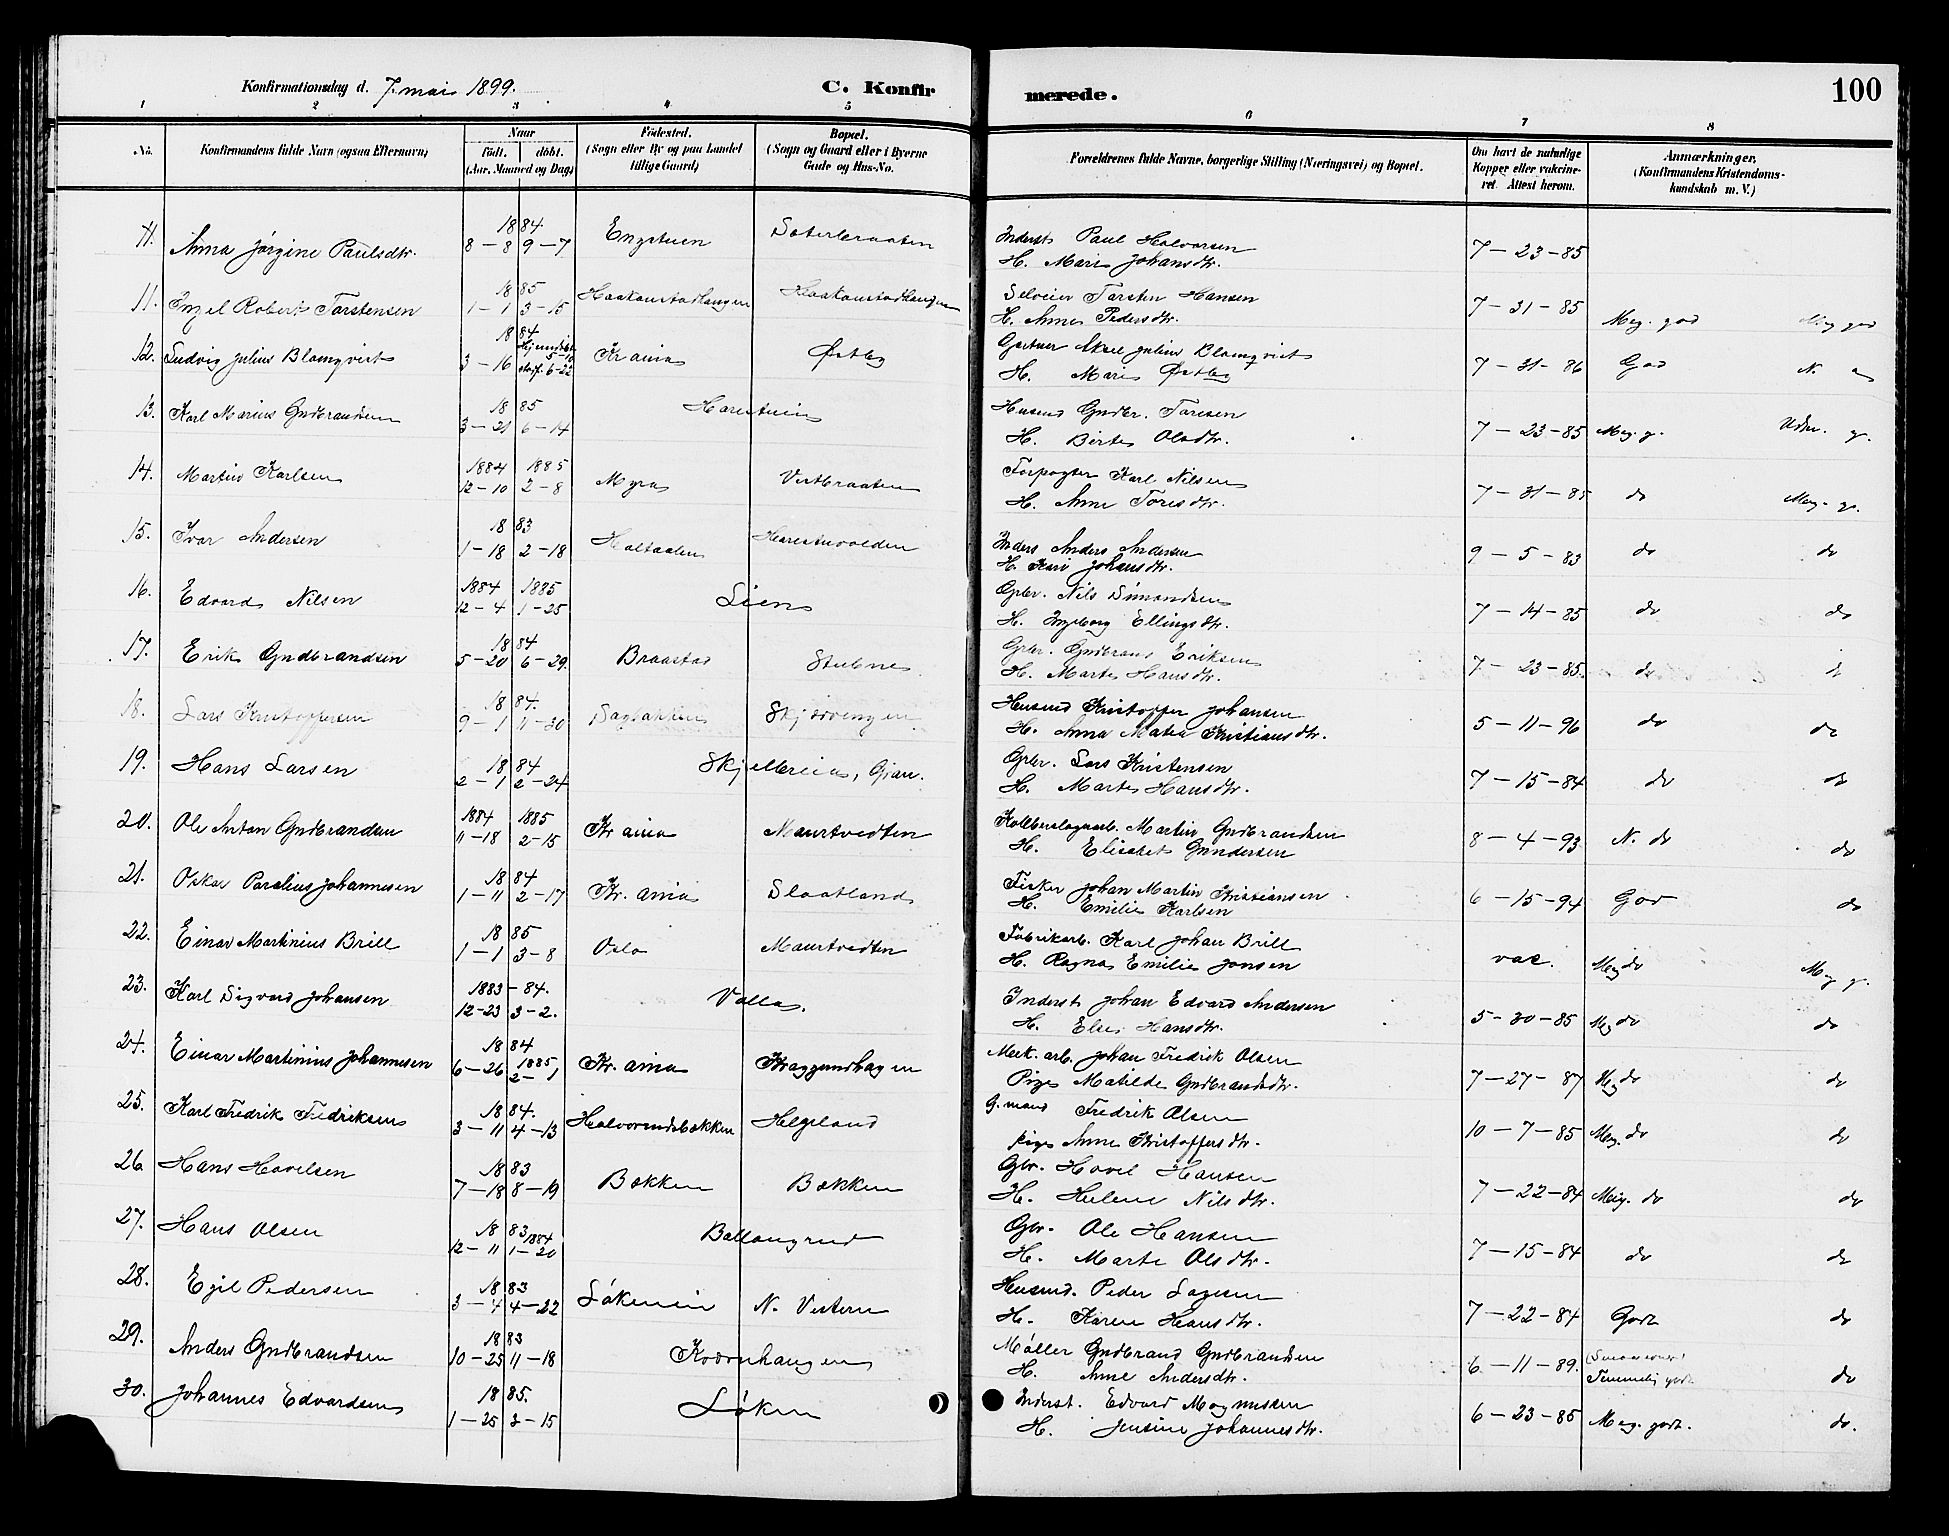 Konfirmationsdag d. 7. mai 1899.
C. Konfir merede.
100
1 2 3 4 5 6 7 8
No.
Konfirmandens fulde Navn (ogsaa Efternavn)
Naar
Födt. döbt.
(Aar, Maaned og Dag)
Födested.
(Sogn eller By og paa Landet tillige Gaard)
Bopæl.
(Sogn og Gaard eller i Byerne Gade og Hus-No.
Forældrenes fulde Navne, borgerlige Stilling (Næringsvei) og Bopæl.
Om havt de naturlige Kopper eller vakcineret. Attest herom.
Anmærkninger.
(Konfirmandens Kristendomskundskab m. V.)
11. Anna Jørgine Paulsdtr. 1884 8-8 9-7 Engstuen Sæterbraaten Inderst Paul Halvorsen 7-23-85
H. Mari Johansdtr.
11. Ingel Robert Torstensen 1885 1-1 3-15 Haakonstadhaugen Haakonstadhaugen Selveier Torsten Hansen 7-31-85 Meg. god Meg god
H. Anne Pedersdtr.
12. Ludvig Julius Blomqvist 1884 3-16 Hjemmedøbt 5-10 stadf. 6-22 Kr ania Østby Gartner Aksel Julius Blomqvist 7-31-86 God
H. Marie Østby
13. Karl Marius Gudbrandsen 1885 3-21 6-14 Harestuen Husmd Gudbr. Toresen 7-23-85 Meg. g. Udm. g.
H. Birte Olsdtr.
14. Martin Karlsen 1884 12-10 1885 2-8 Myra Vestbraaten Forpagter Karl Nilsen 7-31-85 do Meg. g.
H. Anne Toresdtr.
15. Ivar Andersen 1883 1-18 2-18 Holtaalen Harestuvolden Inders Anders Andersen 9-5-83 do do
H. Kari Johansdtr.
16. Edvard Nilsen 1884 12-4 1885 1-25 Lien Gbr. Nils Simondsen 7-14-85 do do
H. Ingeborg Ellingsdtr.
17. Erik Gudbrandsen 1884 5-20 6-29 Braastad Stubne Gbr. Gudbrand Eriksen 7-23-85 do d
H. Marte Hansdtr.
18. Lars Kristoffersen 1884. 9-1 11-30 Sagbakken Skjærvengen Husmd Kristoffer Johansen 5-11-96 do do
H. Anna Matea Kristiansdtr.
19. Hans Larsen 1884 2-1 2-24 Skjelbreia, Gran. Gbr. Lars Kristensen 7-15-84 do do
H. Marte Hansdtr.
20. Ole Anton Gudbrandsen 1884 11-18 1885 2-15 Kr ania Maurtvedten Martin Gudbrandsen 8-4-93 N. do do
H. Elisabet Gundersen
21. Oskar Paralius Johannesen 1884 1-11 2-17 Kr. ania Slaatland Fisker Johan Martin Kristiansen 6-15-94 God do
H. Emilie Karlsen
22. Einar Martinius Brill 1885 1-1 3-8 Oslo Maurtvedten Fabrikarb. Karl Johan Brill vac. Meg do Meg g.
H. Ragna Emilie Jonsen
23. Karl Sigvard Johansen 1883-84. 12-23 3-2. Volla. Inderst Johan Edvard Andersen 5-30-85 Meg do do
H. Else Hansdtr.
24. Einar Martinius Johannesen 1884 6-26 1885 2-1 Kr. ania Kraggerudhagen Mek. arb. Johan Fredrik Olsen 7-27-87 Meg do do
Pige Matilde Gudbrandsdtr.
25. Karl Fredrik Fredriksen 1884. 3-11 4-13 Halvorsrudsbakken Helgeland G. mand Fredrik Olsen 10-7-85 Meg. do do
pige Anne Kristoffersdtr.
26. Hans Hovelsen 1883 7-18 8-19 Bækken Bækken Gbr. Hovel Hansen 7-22-84 Meg. do do
H. Helene Nilsdtr.
27. Hans Olsen 1883 12-11 1884 1-20 Ballangrud Gbr. Ole Hansen 7-15-84 do do
H. Marte Olsdtr.
28. Egil Pedersen 1883 3-4 4-22 Løkeneie N. Vestern Husmd. Peder Lagesen 7-22-84 Godt do
H. Karen Hansdtr.
29. Anders Gudbrandsen 1883 10-25 11-18 Kværnhaugen Møller Gudbrand Gudbrandsen 6-11-89. Temmelig godt do
H. Anne Andersdtr.
30. Johannes Edvardsen 1885. 1-25 3-15 Løken Inderst. Edvard Magnussen 6-23-85 Meg. godt. do.
H. Jensine Johannesdtr.